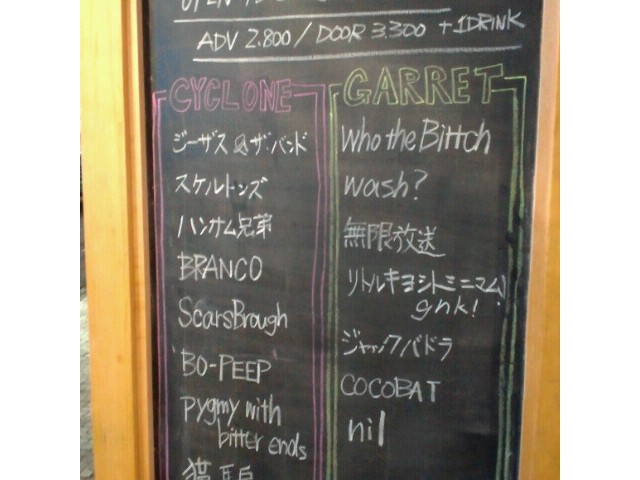 OPEN
ADV 2.800 / DOOR 3.300 +1DRINK
CYCLONE
ジーザス&ザ・バンド
スケルトンズ
ハンサム兄弟
BRANCO
ScarsBrough
BO-PEEP
pygmy with
bitter ends
猫
GARRET
who the Bittch
wash?
無限放送
リトルキヨシトミニマム!
gnk!
ジャックバドラ
COCOBAT
nil